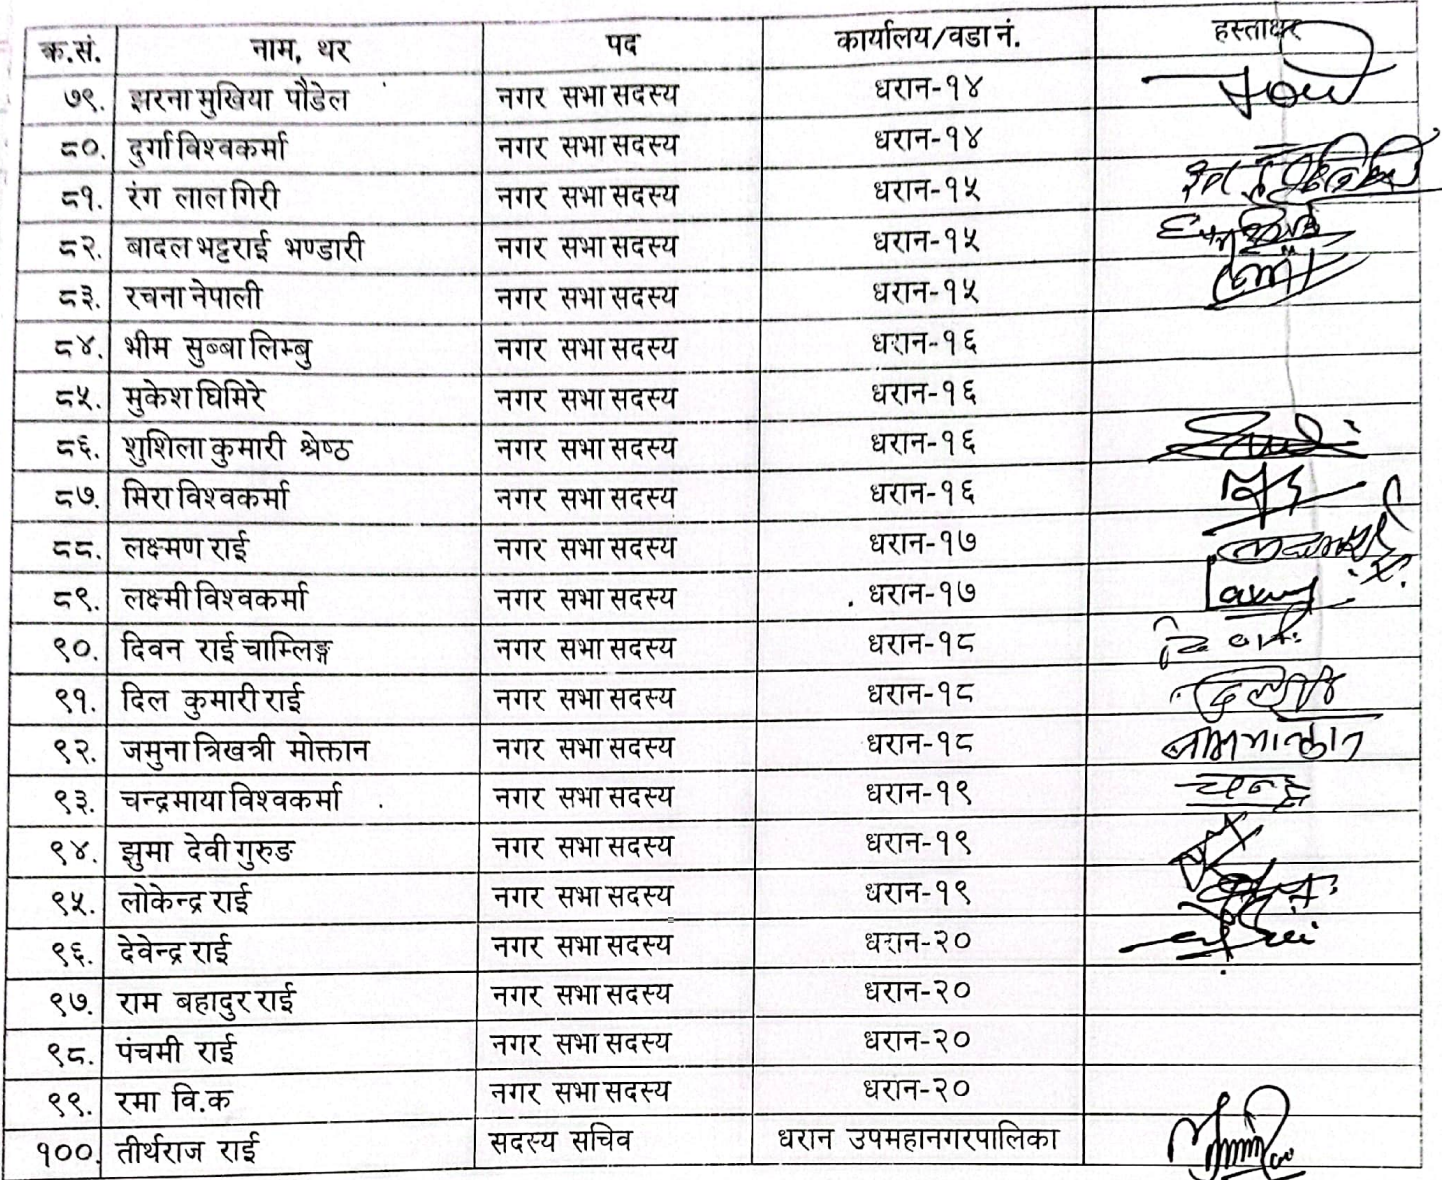 क्र.सं. नाम, थर पद कार्यालय/वडा नं. हस्ताक्षर
७९. झरना मुखिया पौडेल नगर सभा सदस्य धरान-१४
८०. दुर्गा विश्वकर्मा नगर सभा सदस्य धरान-१४
८१. रंग लाल गिरी नगर सभा सदस्य धरान-१५
८२. बादल भट्टराई भण्डारी नगर सभा सदस्य धरान-१५
८३. रचना नेपाली नगर सभा सदस्य धरान-१५
८४. भीम सुब्बा लिम्बु नगर सभा सदस्य धरान-१६
८५. मुकेश घिमिरे नगर सभा सदस्य धरान-१६
८६. शुशिला कुमारी श्रेष्ठ नगर सभा सदस्य धरान-१६
८७. मिरा विश्वकर्मा नगर सभा सदस्य धरान-१६
८८. लक्ष्मण राई नगर सभा सदस्य धरान-१७
८९. लक्ष्मी विश्वकर्मा नगर सभा सदस्य धरान-१७
९०. दिवन राई चाम्लिङ्ग नगर सभा सदस्य धरान-१८
९१. दिल कुमारी राई नगर सभा सदस्य धरान-१८
९२. जमुना त्रिखत्री मोक्तान नगर सभा सदस्य धरान-१८
९३. चन्द्रमाया विश्वकर्मा नगर सभा सदस्य धरान-१९ चन्द्र
९४. झुमा देवी गुरुङ नगर सभा सदस्य धरान-१९
९५. लोकेन्द्र राई नगर सभा सदस्य धरान-१९
९६. देवेन्द्र राई नगर सभा सदस्य धरान-२०
९७. राम बहादुर राई नगर सभा सदस्य धरान-२०
९८. पंचमी राई नगर सभा सदस्य धरान-२०
९९. रमा वि.क नगर सभा सदस्य धरान-२०
१००. तीर्थराज राई सदस्य सचिव धरान उपमहानगरपालिका